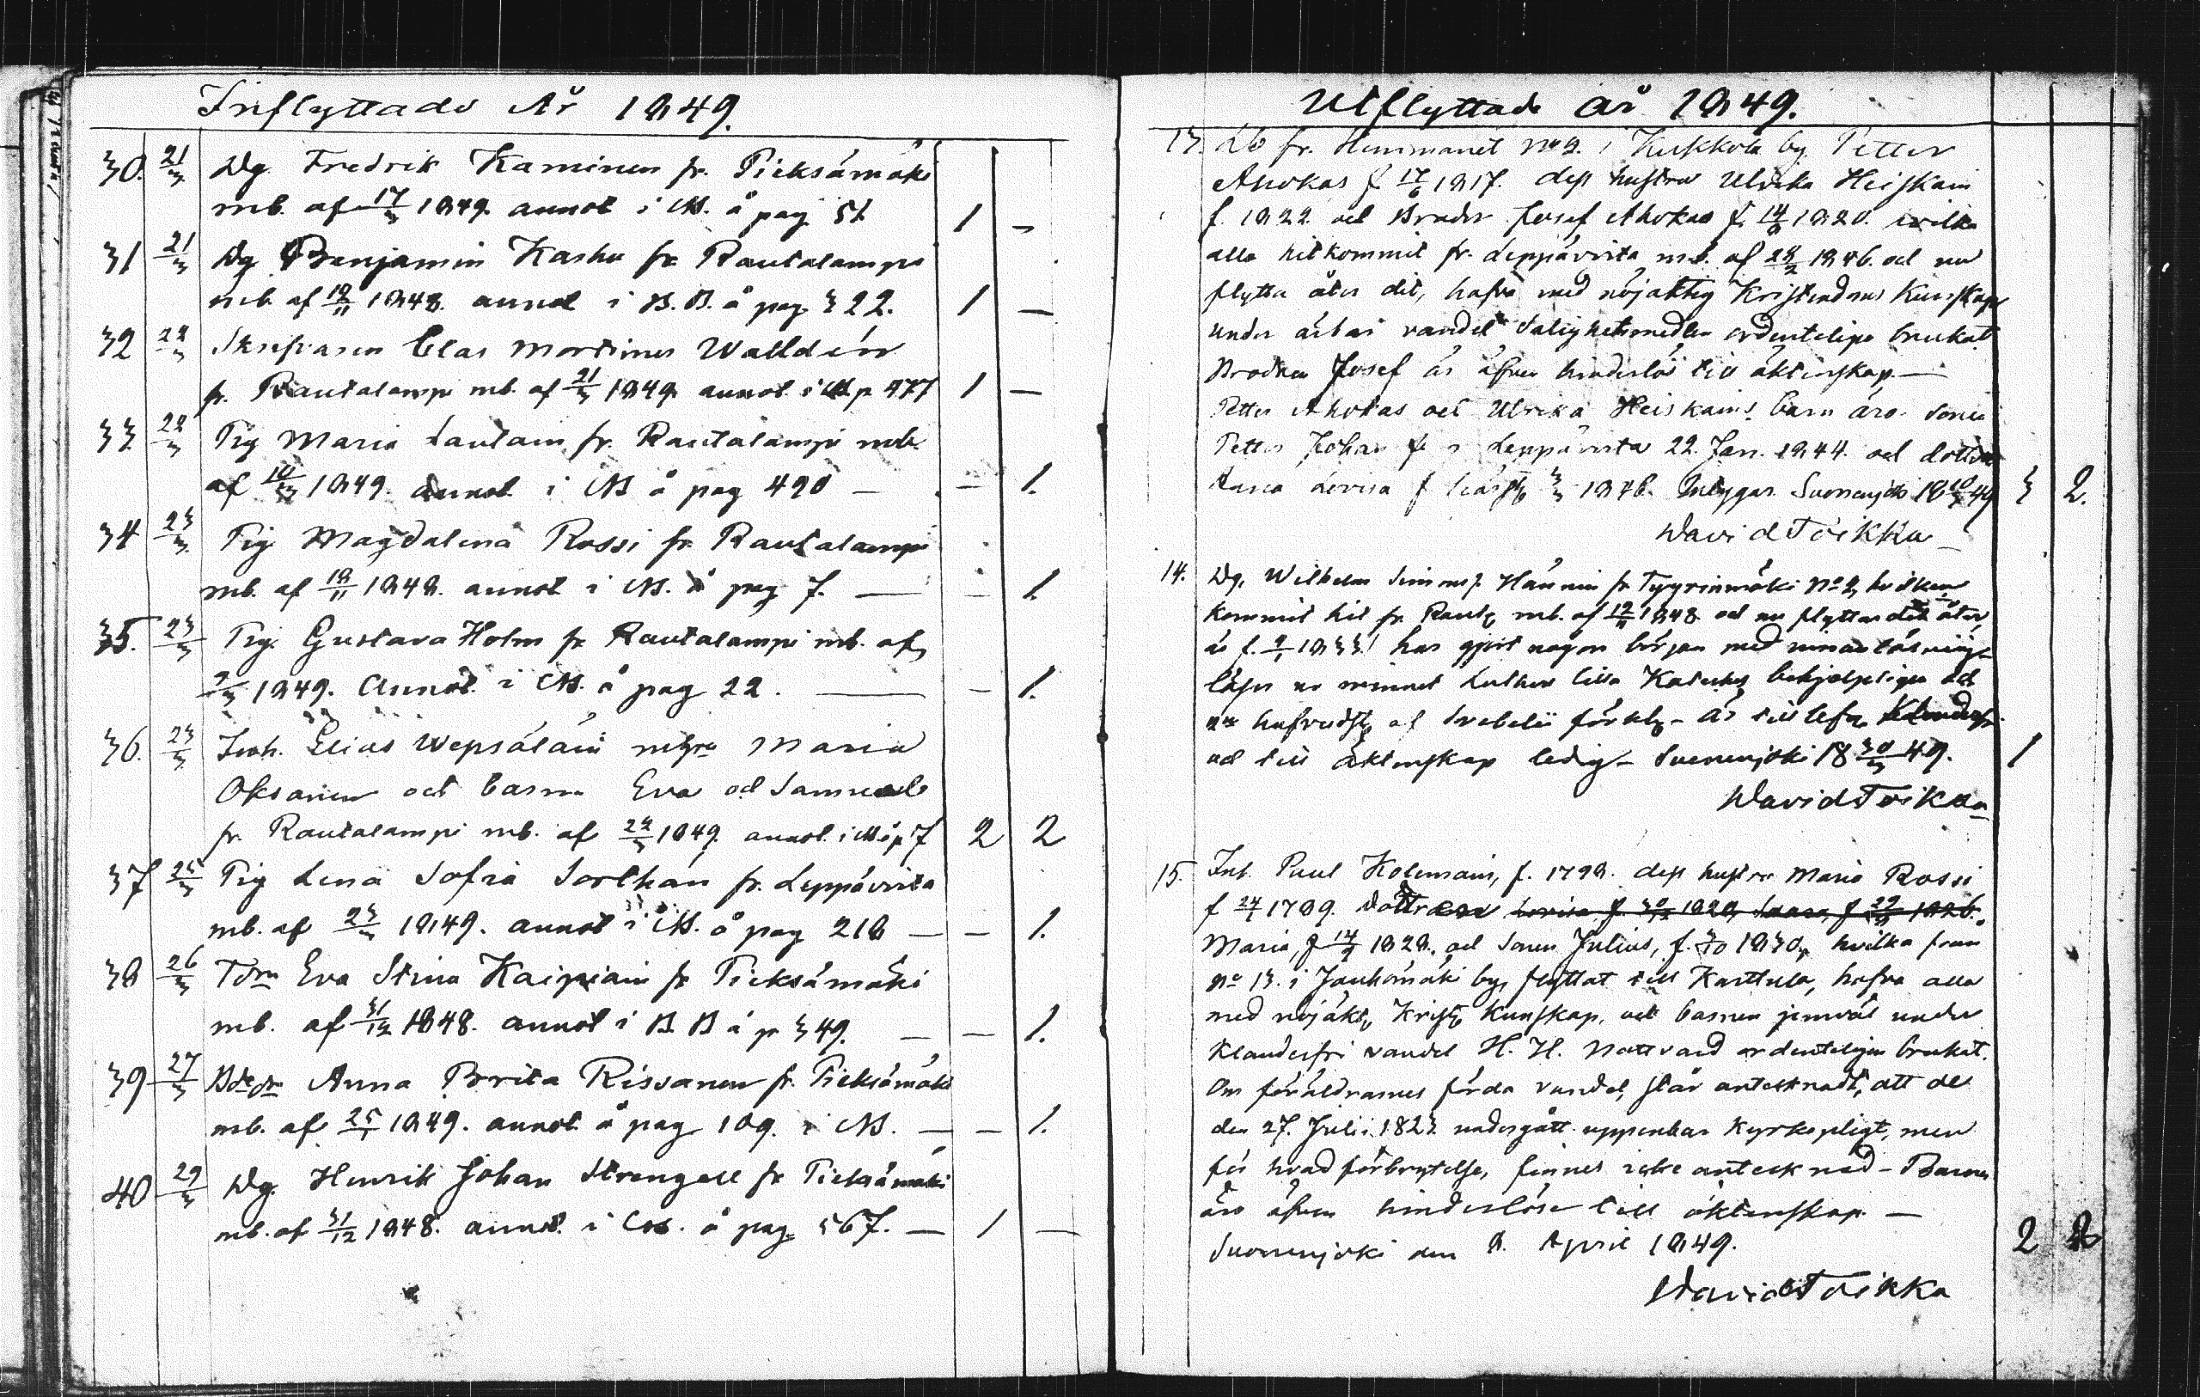 Inflyttade År 1849.
30. 21/3 Dg. Fredrik Kaminen fr. Pieksämäki
mb. af 17/3 1849. annot i MB. å pag 51 1 –
31 21/3 Dg Benjamin Kashu fr Rautalampi
mb. af 18/11 1848. annot i B. B. å pag. 322. 1 –
32 22/3 Skrifvaren Clas Mortimer Walldén
fr. Rautalampi mb. af 21/3 1849 annot. i MB p 477 1 –
33. 22/3 Pig Maria Lautain fr. Rautalampi mb.
af 10/3 1849. annot. i MB å pag 490 — – 1.
34 23/3 Pig Magdalena Rossi fr Rautalampi
mb. af 18/11 1848. annot i MB. å pag 7. — – 1.
35. 23/3 Pig. Gustava Holm fr Rautalampi mb. af
9/3 1849. Annot. i MB. å pag 22. — – 1.
36. 23/3 Inh. Elias Wepsäläin Maria
Oksanen och barn Eva och Samuel
fr. Rautalampi mb. af 22/3 1849. annot. i MB å p 7 2 2
37 25/3 Pig Lena Sofia Sorlhán fr. Leppävirta
mb. af 23/3 1849. annot i MB. å pag 218 — – 1.
38 26/3 Tdrn Eva Stina Kaipiain fr Pieksämäki
mb. af 31/12 1848. annot i B B å p 349. — – 1.
39 27/3 Anna Brita Rissanen fr. Pieksämäki
mb. af 25/1 1849. annot å pag 109. i MB. — – 1.
40 29/3 Dg. Henrik Johan Strengell fr Pieksämäki
mb. af 31/12 1848. annot. i MB. å pag. 567. — 1 —
Utflyttade År 1849.
13. Lb fr. Hemmanet No 2. i Kukkola by. Petter
Ahokas f 17/6 1817. dess hustru Ulrika Heiskain
f. 1822 och Broder Josef Ahokas f. 14/6 1820. hvilka
alla hitkommit fr. Leppävirta mb. af 28/2 1846. och nu
flytta åter dit, hafva med nöjaktig Kristendoms Kunskap
under ärbar vandel Salighetsmedlen ordenteligen brukat
Brodren Josef är äfven hinderlös till äktenskap. —
Petter Ahokas och Ulrika Heiskains barn äro sonen
Petter Johan f i Leppävirta 22. Jan. 1844. och dottren
Anna Lovisa f 3/3 1846. Suonenjoki 18 10/3 49 3 2.
David Toikka
14. Dg. Wilhelm Simonsson Hännin fr Tyyrinmäki No 2, hvilken
kommit hit fr Raut, mb. af 19/11 1848 och nu flyttar dit åter,
är f. 9/1 1833. har gjort någon början med innanläsning
läser ur minnet Luthers lilla Kateches behjelpligen och
af Svebelii förkl. – Är till lefv.
och till äktenskap ledig – Suonenjoki 18 30/3 49. 1
David Toikka
15. Inh. Paul Kolemain, f. 1798. dess hustru Maria Rossi
f 24/1 1799. Döttren Lovisa f 30/12 1820, f 29/10 1826.
Maria, f 14/9 1828, och Sonen Julius, f. 3/10 1830, hvilka från
No 13. i Jauhomäki by, flyttat till Karttula, hafva alla
med nöjakt, Krist, Kunskap, och barnen jemväl under
Klanderfri vandel H. H. Nattvard ordenteligen brukat.
Om föräldrarnes förda vandel, står antecknadt, att de
den 27. Julii 1823 undergått uppenbar Kyrkopligt, men
för hvad förbrytelse, finnes icke antecknad – Barnen
äro äfven hinderlöse till äktenskap —
Suonenjoki den 8. April 1849. 2 2
David Toikka